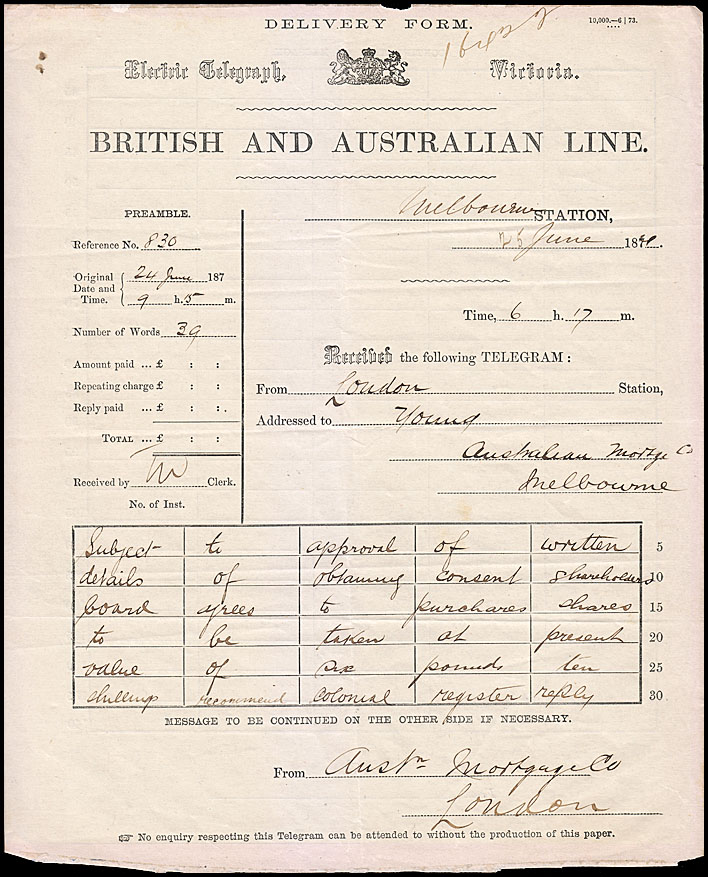 DELIVERY FORM.
10,000.—6 | 73.
Electric Telegraph, Victoria.
BRITISH AND AUSTRALIAN LINE.
PREAMBLE.
Reference No. 830
Original Date and Time. { 24 June 187
9 h. 5 m.
Number of Words 39
Amount paid ... £ : :
Repeating charge £ : :
Reply paid ... £ : :.
TOTAL ... £ : :
Received by Clerk.
No. of Inst.
Melbourne STATION,
25 June 18
Time, 6 h. 17 m.
Received the following TELEGRAM :
From London Station,
Addressed to Young
Australian Mortge Co
Melbourne
Subject to approval of written 5
details of obtaining consent shareholders 10
board agrees to purchases shares 15
to be taken at present 20
value of six pounds ten 25
shillings recommend colonial register reply 30
MESSAGE TO BE CONTINUED ON THE OTHER SIDE IF NECESSARY.
From Austn Mortgage Co
London
☞ No enquiry respecting this Telegram can be attended to without the production of this paper.